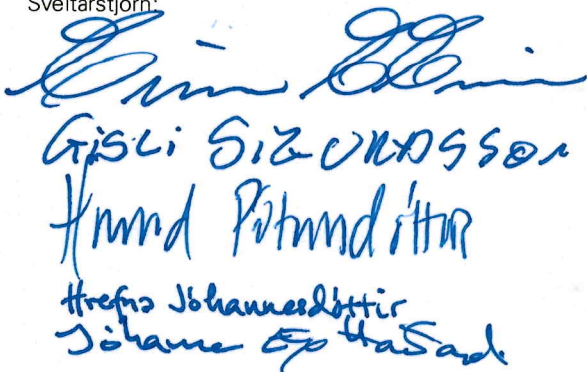 Sveitarstjórn:
Einar E Einarsson
GÍSLI SIGURÐSSON
Hrund Pétursdóttir
Hrefna Jóhannesdóttir
Jóhanna Ey Harðard.